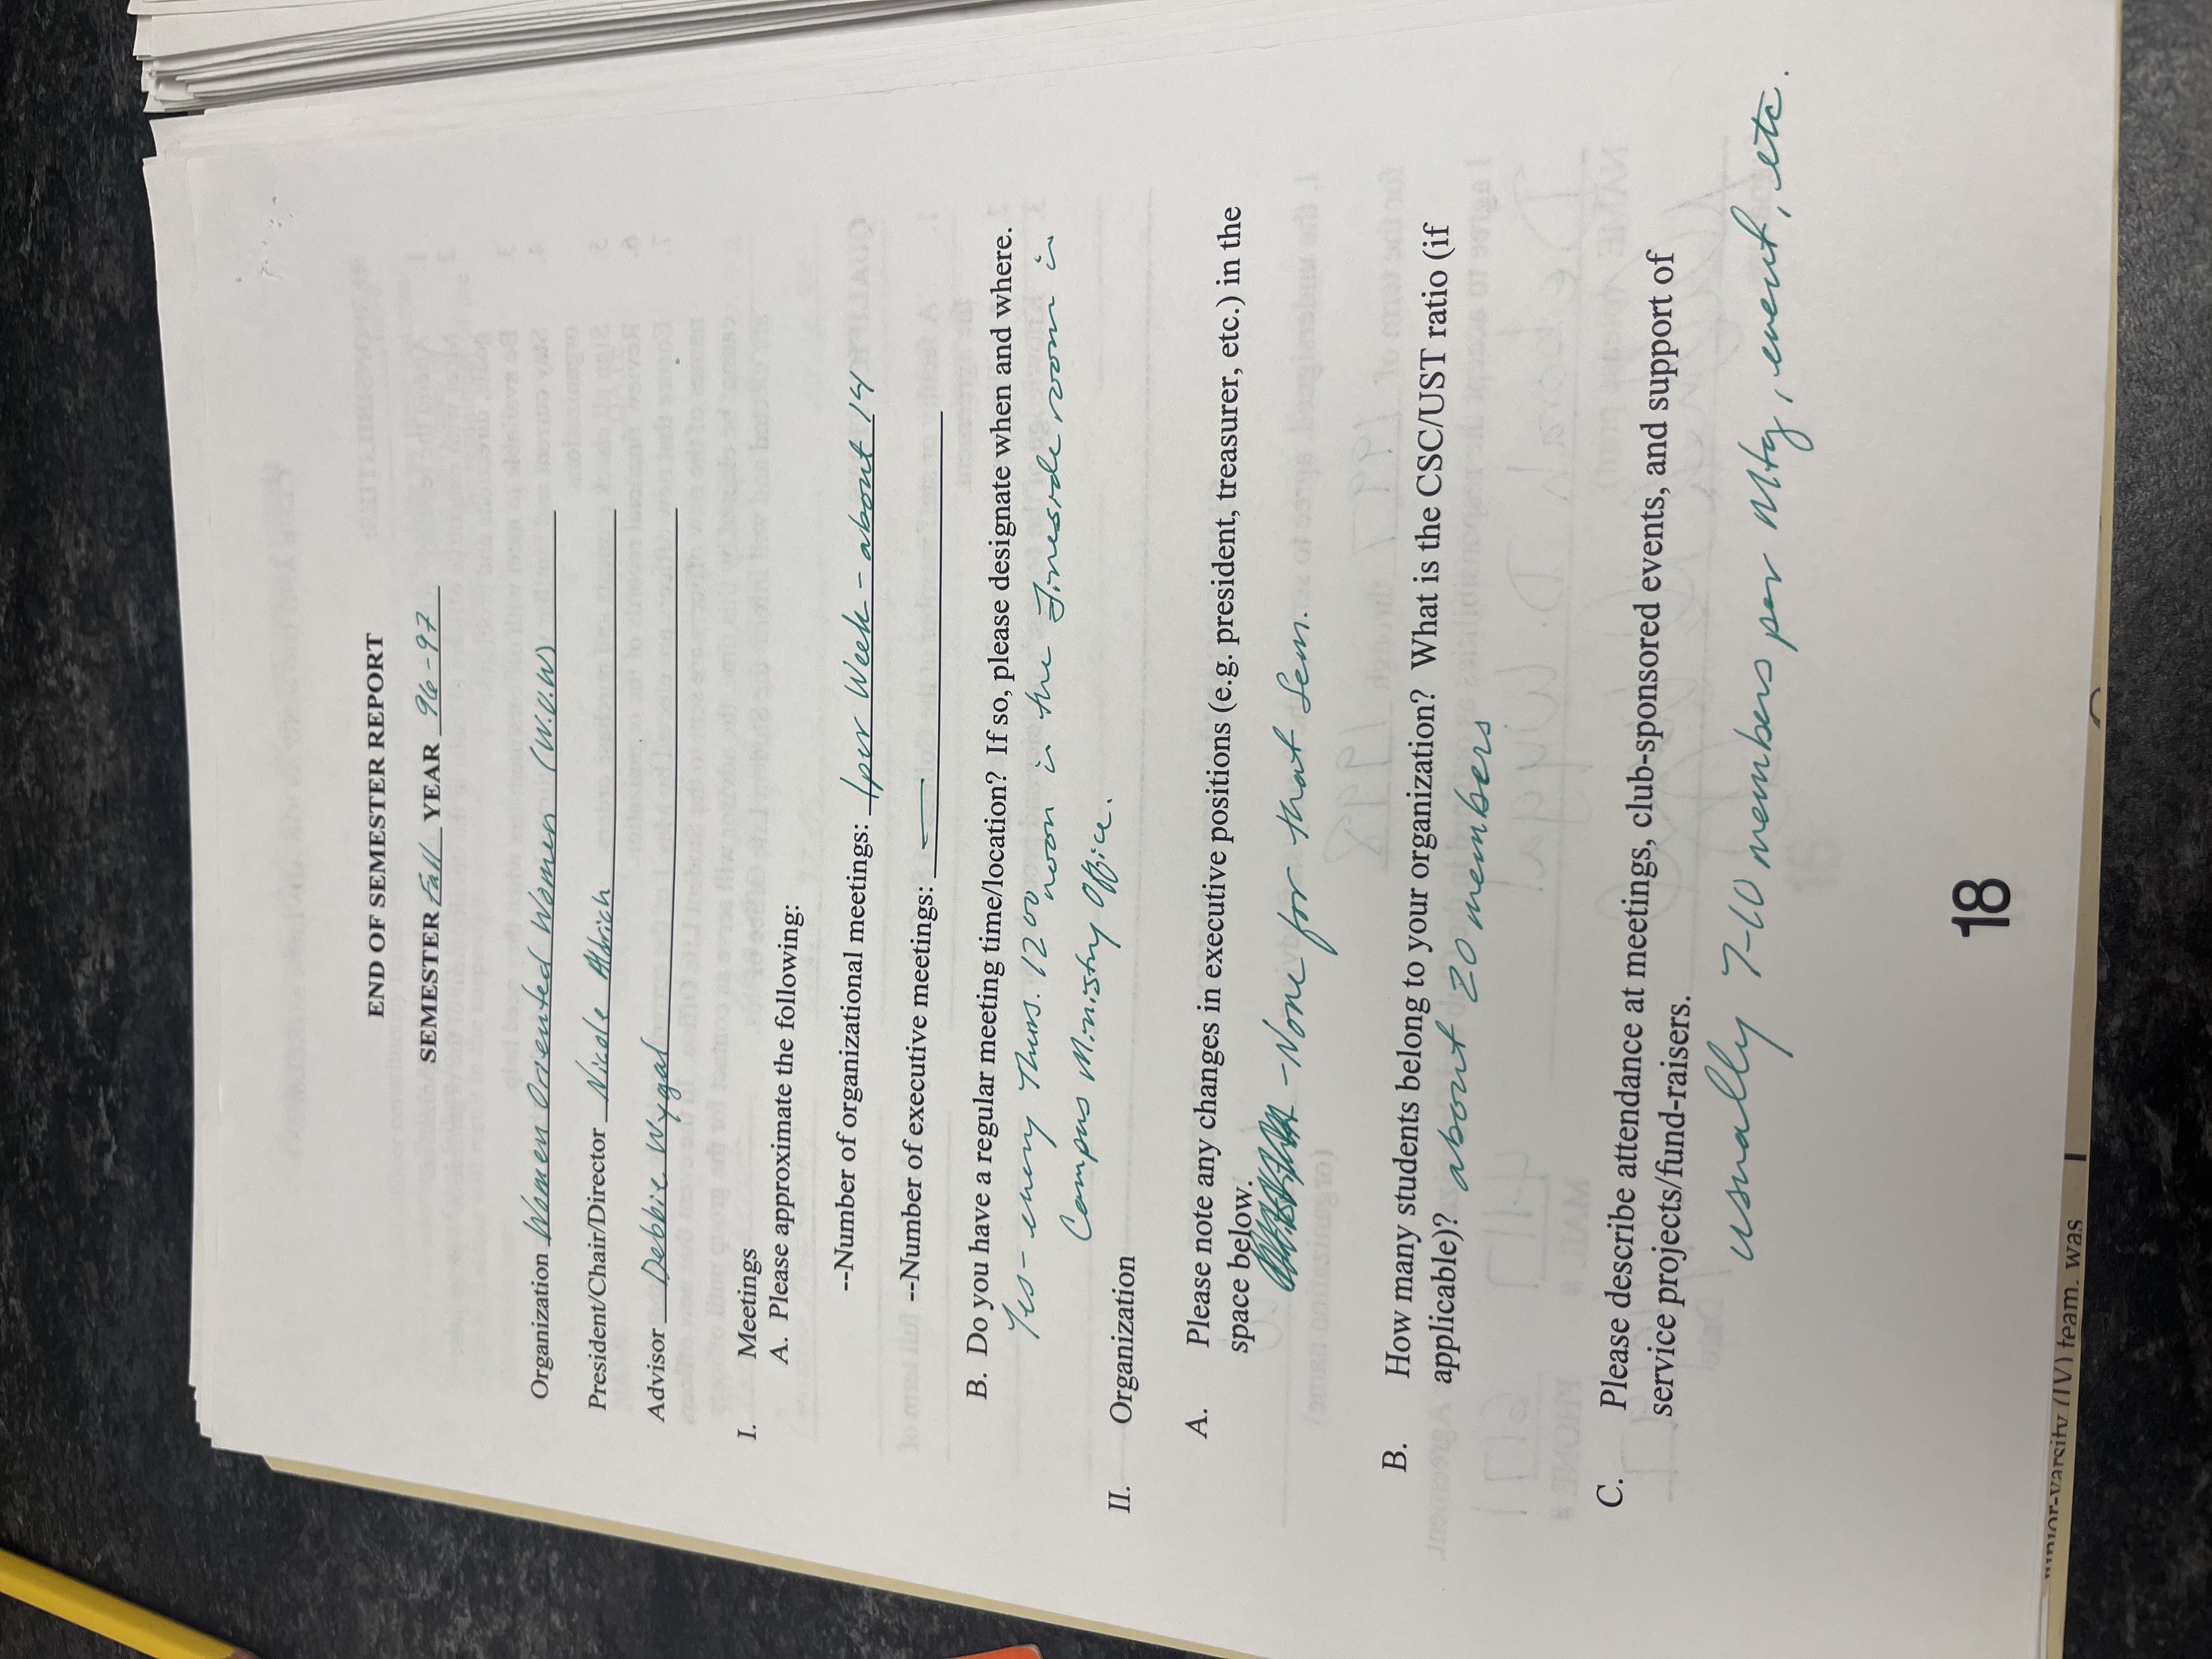 END OF SEMESTER REPORT
SEMESTER Fall YEAR 96-97
Organization Women Oriented Women (W.O.W)
President/Chair/Director Nicole Aldrich
Advisor Debbie Wygal
I. Meetings
A. Please approximate the following:
--Number of organizational meetings: 1 per Week - about 14
--Number of executive meetings: —
B. Do you have a regular meeting time/location? If so, please designate when and where.
Yes - every Thurs. 12 00 noon in the Fireside room in
Campus Ministry Office.
II. Organization
A. Please note any changes in executive positions (e.g. president, treasurer, etc.) in the
space below.
- None for that Sem.
B. How many students belong to your organization? What is the CSC/UST ratio (if
applicable)? about 20 members
C. Please describe attendance at meetings, club-sponsored events, and support of
service projects/fund-raisers.
usually 7-10 members per Mtg, event, etc.
18
junior-varsity (JV) team, was